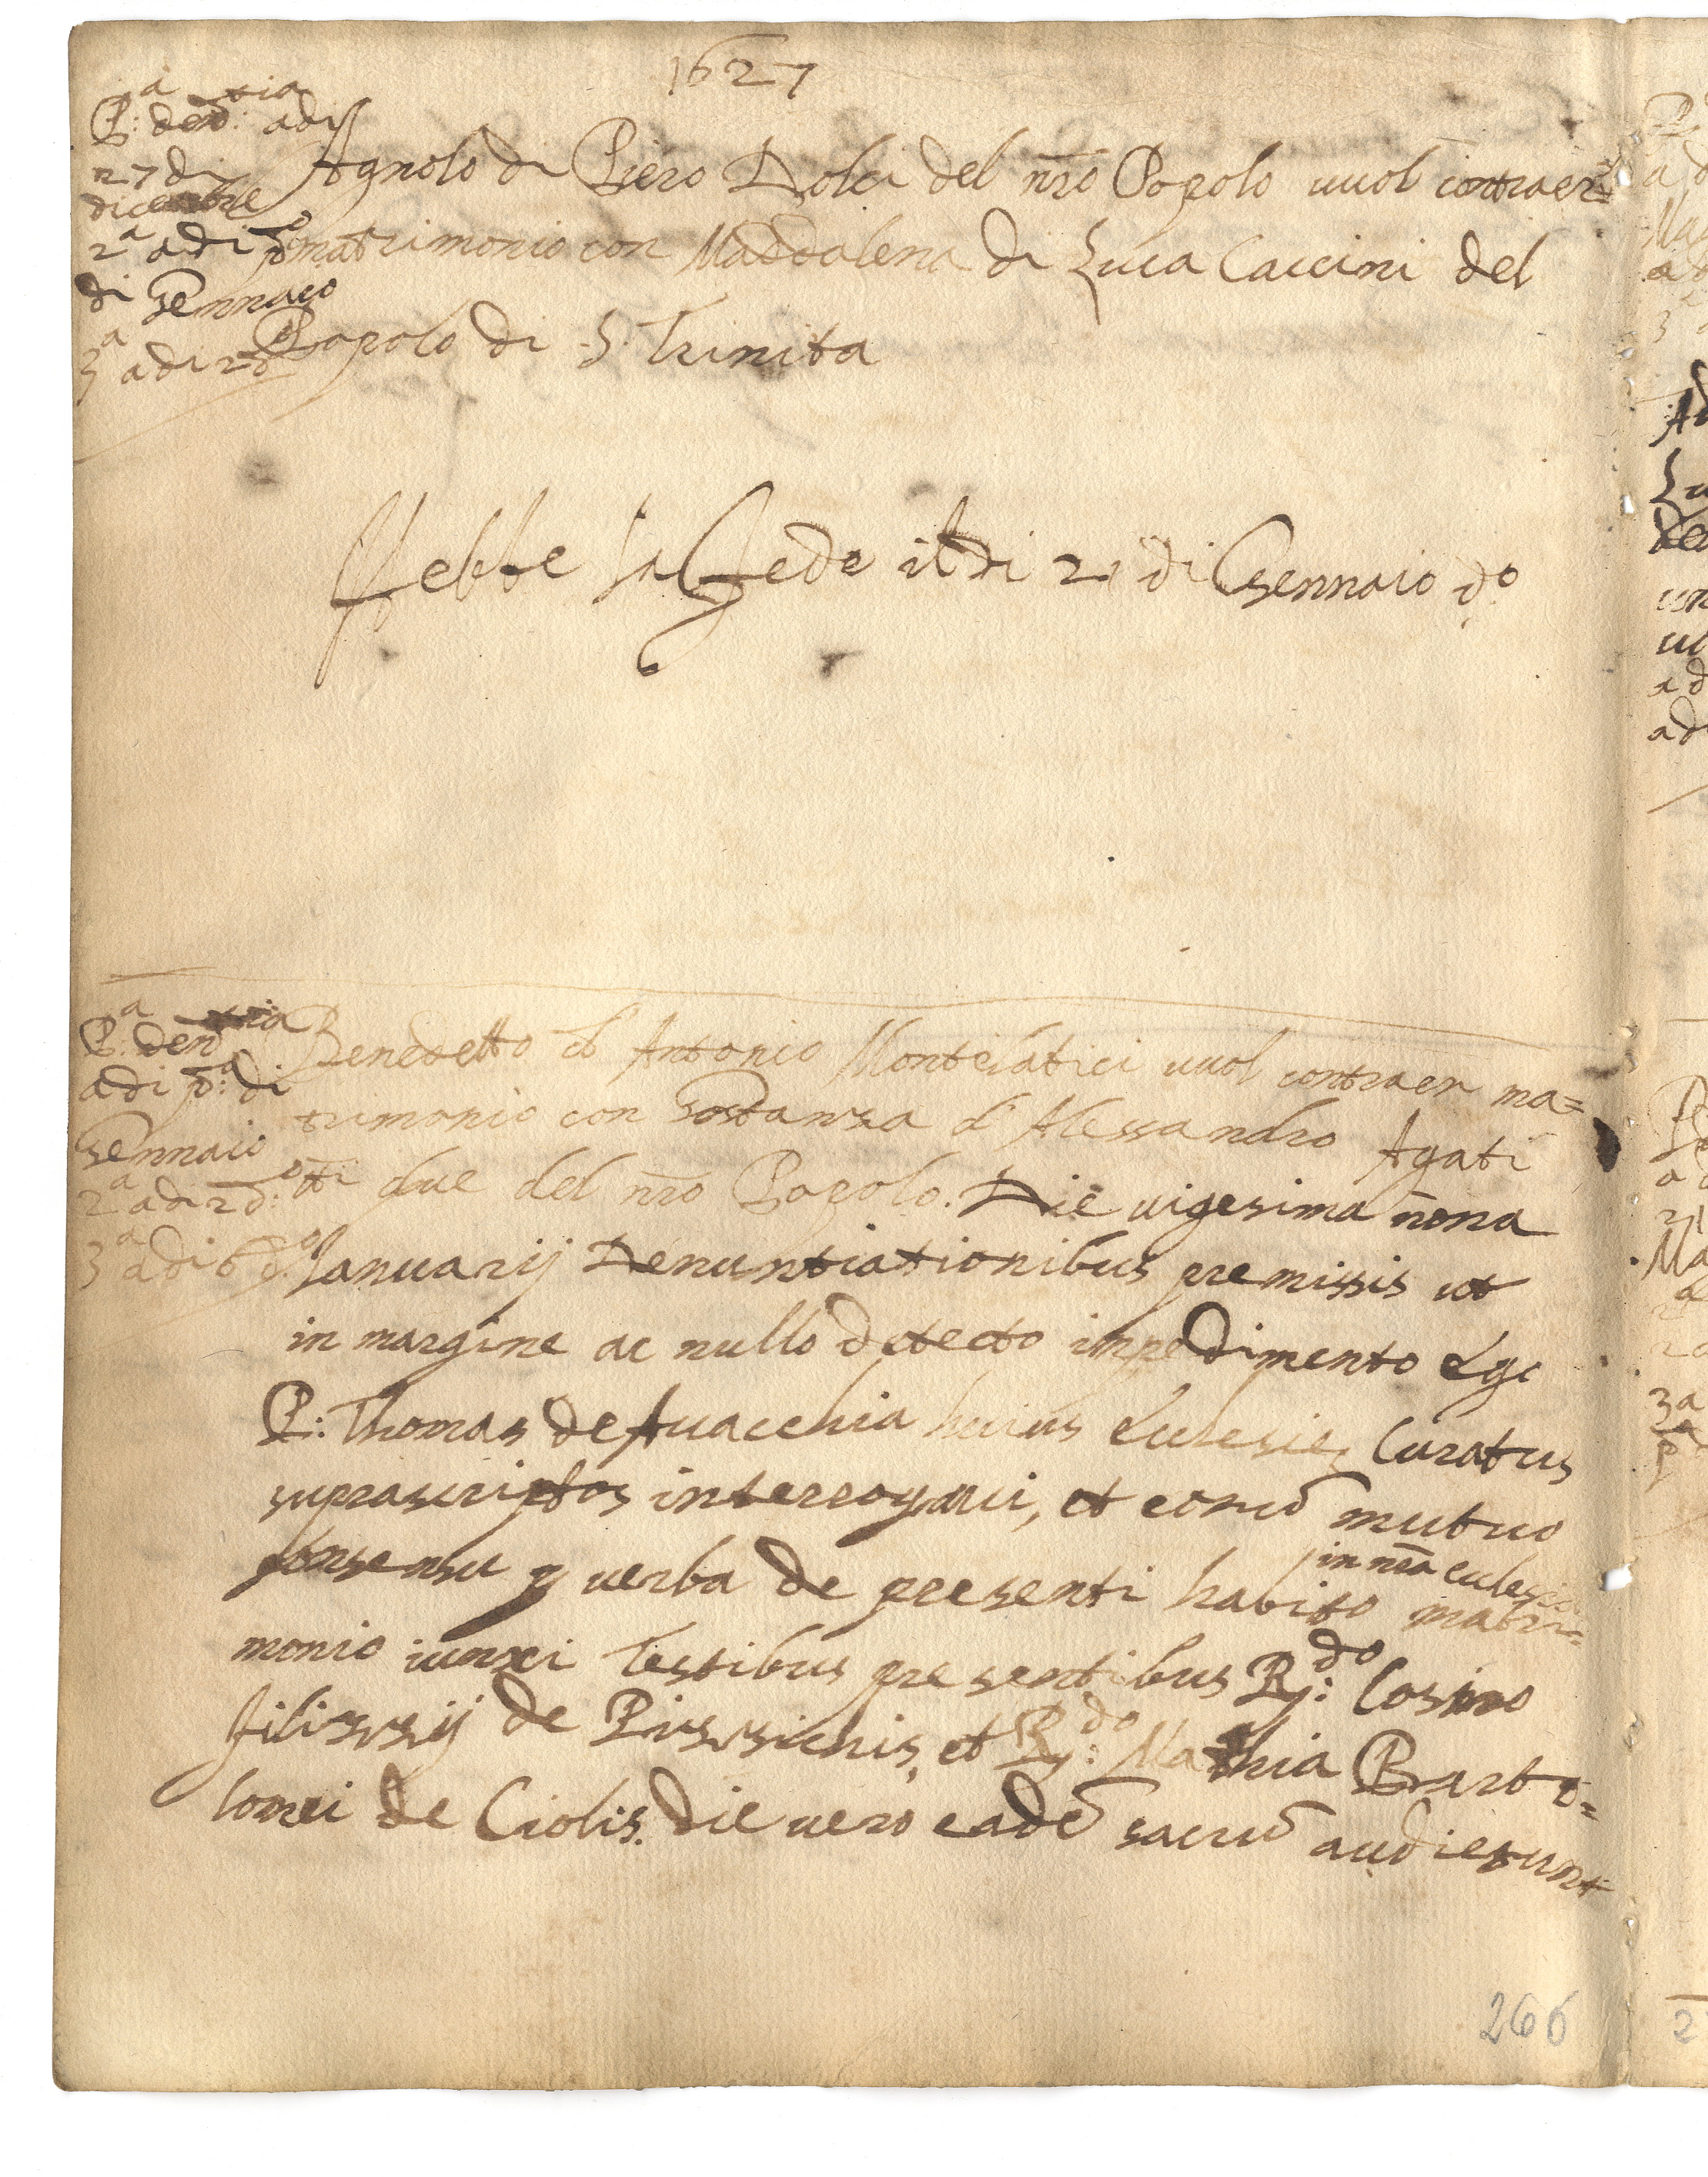 1627
P.a den:tia adi
27 di
dicembre
2a adi po
di Gennaio
3a adi 2 do
Agnolo di Piero Dolci del nr̄o Popolo uuol contraer=
matrimonio con Maddalena di Luca Caccini del
Popolo di S. Trinita
Hebbe la fede il di 21 di Gennaio do
P.a den:tia
adi p:a di
Gennaio
2a adi 2 d:o
3a adi 6 d:o
Benedetto d' Antonio Montciatici uuol contraer ma=
trimonio con Gostanza d' Alessandro Agati
tti due del nr̄o Popolo. Die uigesima nona
Ianuarij Denuntiationibus premissis ut
in margine ac nullo detecto inpedimento Ego
P: Thomas de Auacchia huius Ecclesie Curatus
suprascriptos interrogaui, et eorū mutuo
consensu p uerba de presenti habito in nrā ecclesia matri=
monio iunxi Testibus presentibus R:do Cosimo
filippij de et R:do Mathia Barto=
lomei de Ciolis. die uero eadē sacrū audierunt
266